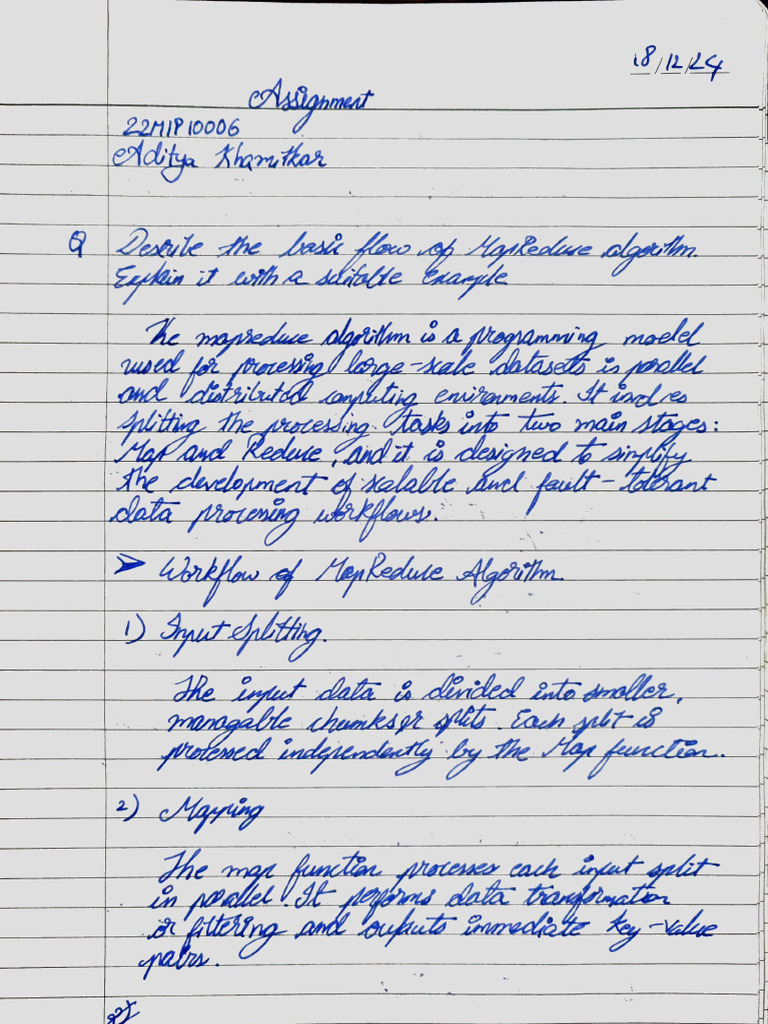 18/12/24
Assignment
22MIP10006
Aditya Khamitkar
Q Describe the basic flow of MapReduce algorithm.
Explain it with a suitable example
The mapreduce algorithm is a programming model
used for processing large-scale datasets is parallel
and distributed computing environments. It involves
splitting the processing tasks into two main stages:
Map and Reduce, and it is designed to simplify
the development of scalable and fault-tolerant
data processing workflows.
➤ Workflow of MapReduce Algorithm.
1) Input Splitting.
The input data is divided into smaller,
managable chunks or splits. Each split is
processed independently by the Map function.
2) Mapping
The map function processes each input split
in parallel. It performs data transformation
or filtering and outputs immediate key-value
pairs.